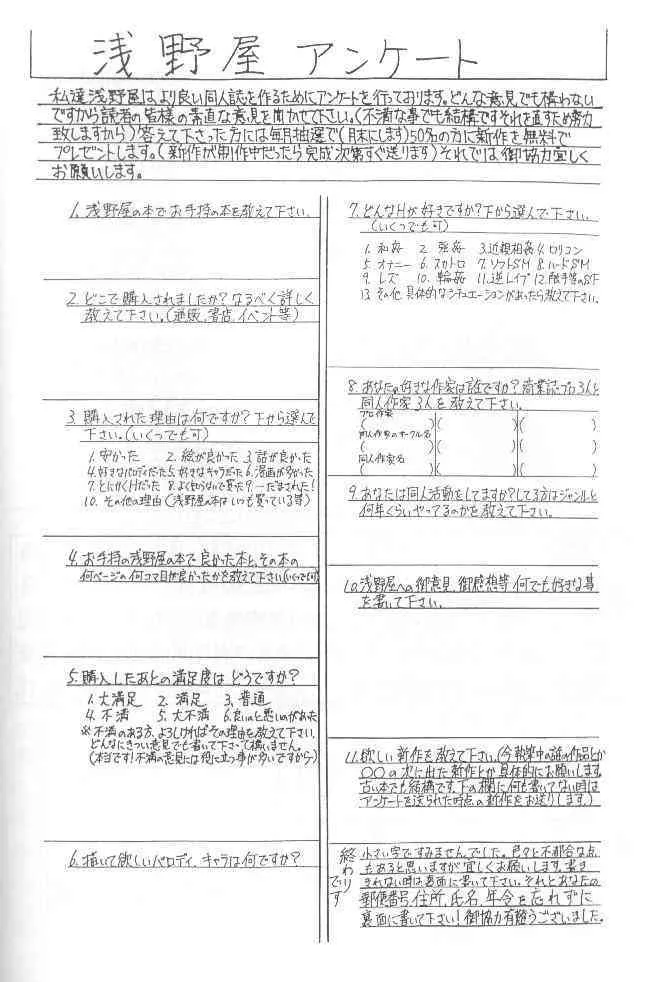 浅野屋 アンケート
私達浅野屋は、より良い同人誌を作るためにアンケートを行っております。どんな意見でも構わない
ですから読者の皆様の素直な意見を聞かせて下さい。(不満な事でも結構ですそれを直すため努力
致しますから)答えて下さった方には毎月抽選で(月末にします)50名の方に新作を無料で
プレゼントします。(新作が制作中だったら完成次第すぐ送ります)それでは、御協力宜しく
お願いします。
1. 浅野屋の本でお手持の本を教えて下さい。
2. どこで購入されましたか?なるべく詳しく
教えて下さい。(通販、書店、イベント等)
3. 購入された理由は何ですか?下から選んで
下さい。(いくつでも可)
1. 安かった 2. 絵が良かった 3. 話が良かった
4. 好きなパロディだった 5. 好きなキャラだった 6. 漫画が多かった
7. とにかくHだった 8. よく知らないで買った 9. 一だまされた!
10. その他の理由(浅野屋の本はいつも買っている等)
4. お手持の浅野屋の本で良かった本と、その本の
何ページの何コマ目が良かったかを教えて下さい(いくつでも可)
5. 購入したあとの満足度はどうですか?
1. 大満足 2. 満足 3. 普通
4. 不満 5. 大不満 6. 良いのと悪いのがあった
※不満のある方、よろしければその理由を教えて下さい。
どんなにきつい意見でも書いて下さって構いません。
(本当です!不満の意見には役に立つ事が多いですから)
6. 描いて欲しいパロディ、キャラは何ですか?
7. どんなHが好きですか?下から選んで下さい。
(いくつでも可)
1. 和姦 2. 強姦 3. 近親相姦 4. ロリコン
5. オナニー 6. スカトロ 7. ソフトSM 8. ハードSM
9. レズ 10. 輪姦 11. 逆レイプ 12. 触手等のSF
13. その他 具体的なシチュエーションがあったら教えて下さい。
8. あなたの好きな作家は誰ですか?商業誌・プロ3人と
同人作家3人を教えて下さい。
プロ作家
( )( )( )
同人作家のサークル名
( )( )( )
同人作家名
( )( )( )
9. あなたは同人活動をしてますか?してる方はジャンルと
何年くらいやってるのかを教えて下さい。
10. 浅野屋への御意見、御感想等何でも好きな事
を書いて下さい。
11. 欲しい新作を教えて下さい。(今執筆中の謎の作品とか
〇〇の次に出た新作とか具体的にお願いします。
古い本でも結構です。下の欄に何も書いてない時は
アンケートを送られた時点の新作をお送りします。)
終わりです
小さい字ですみませんでした。色々と不都合な点
もあると思いますが宜しくお願いします。書き
きれない時は裏面に書いて下さい。それとあなたの
郵便番号、住所、氏名、年令を忘れずに
裏面に書いて下さい!御協力有難うございました。